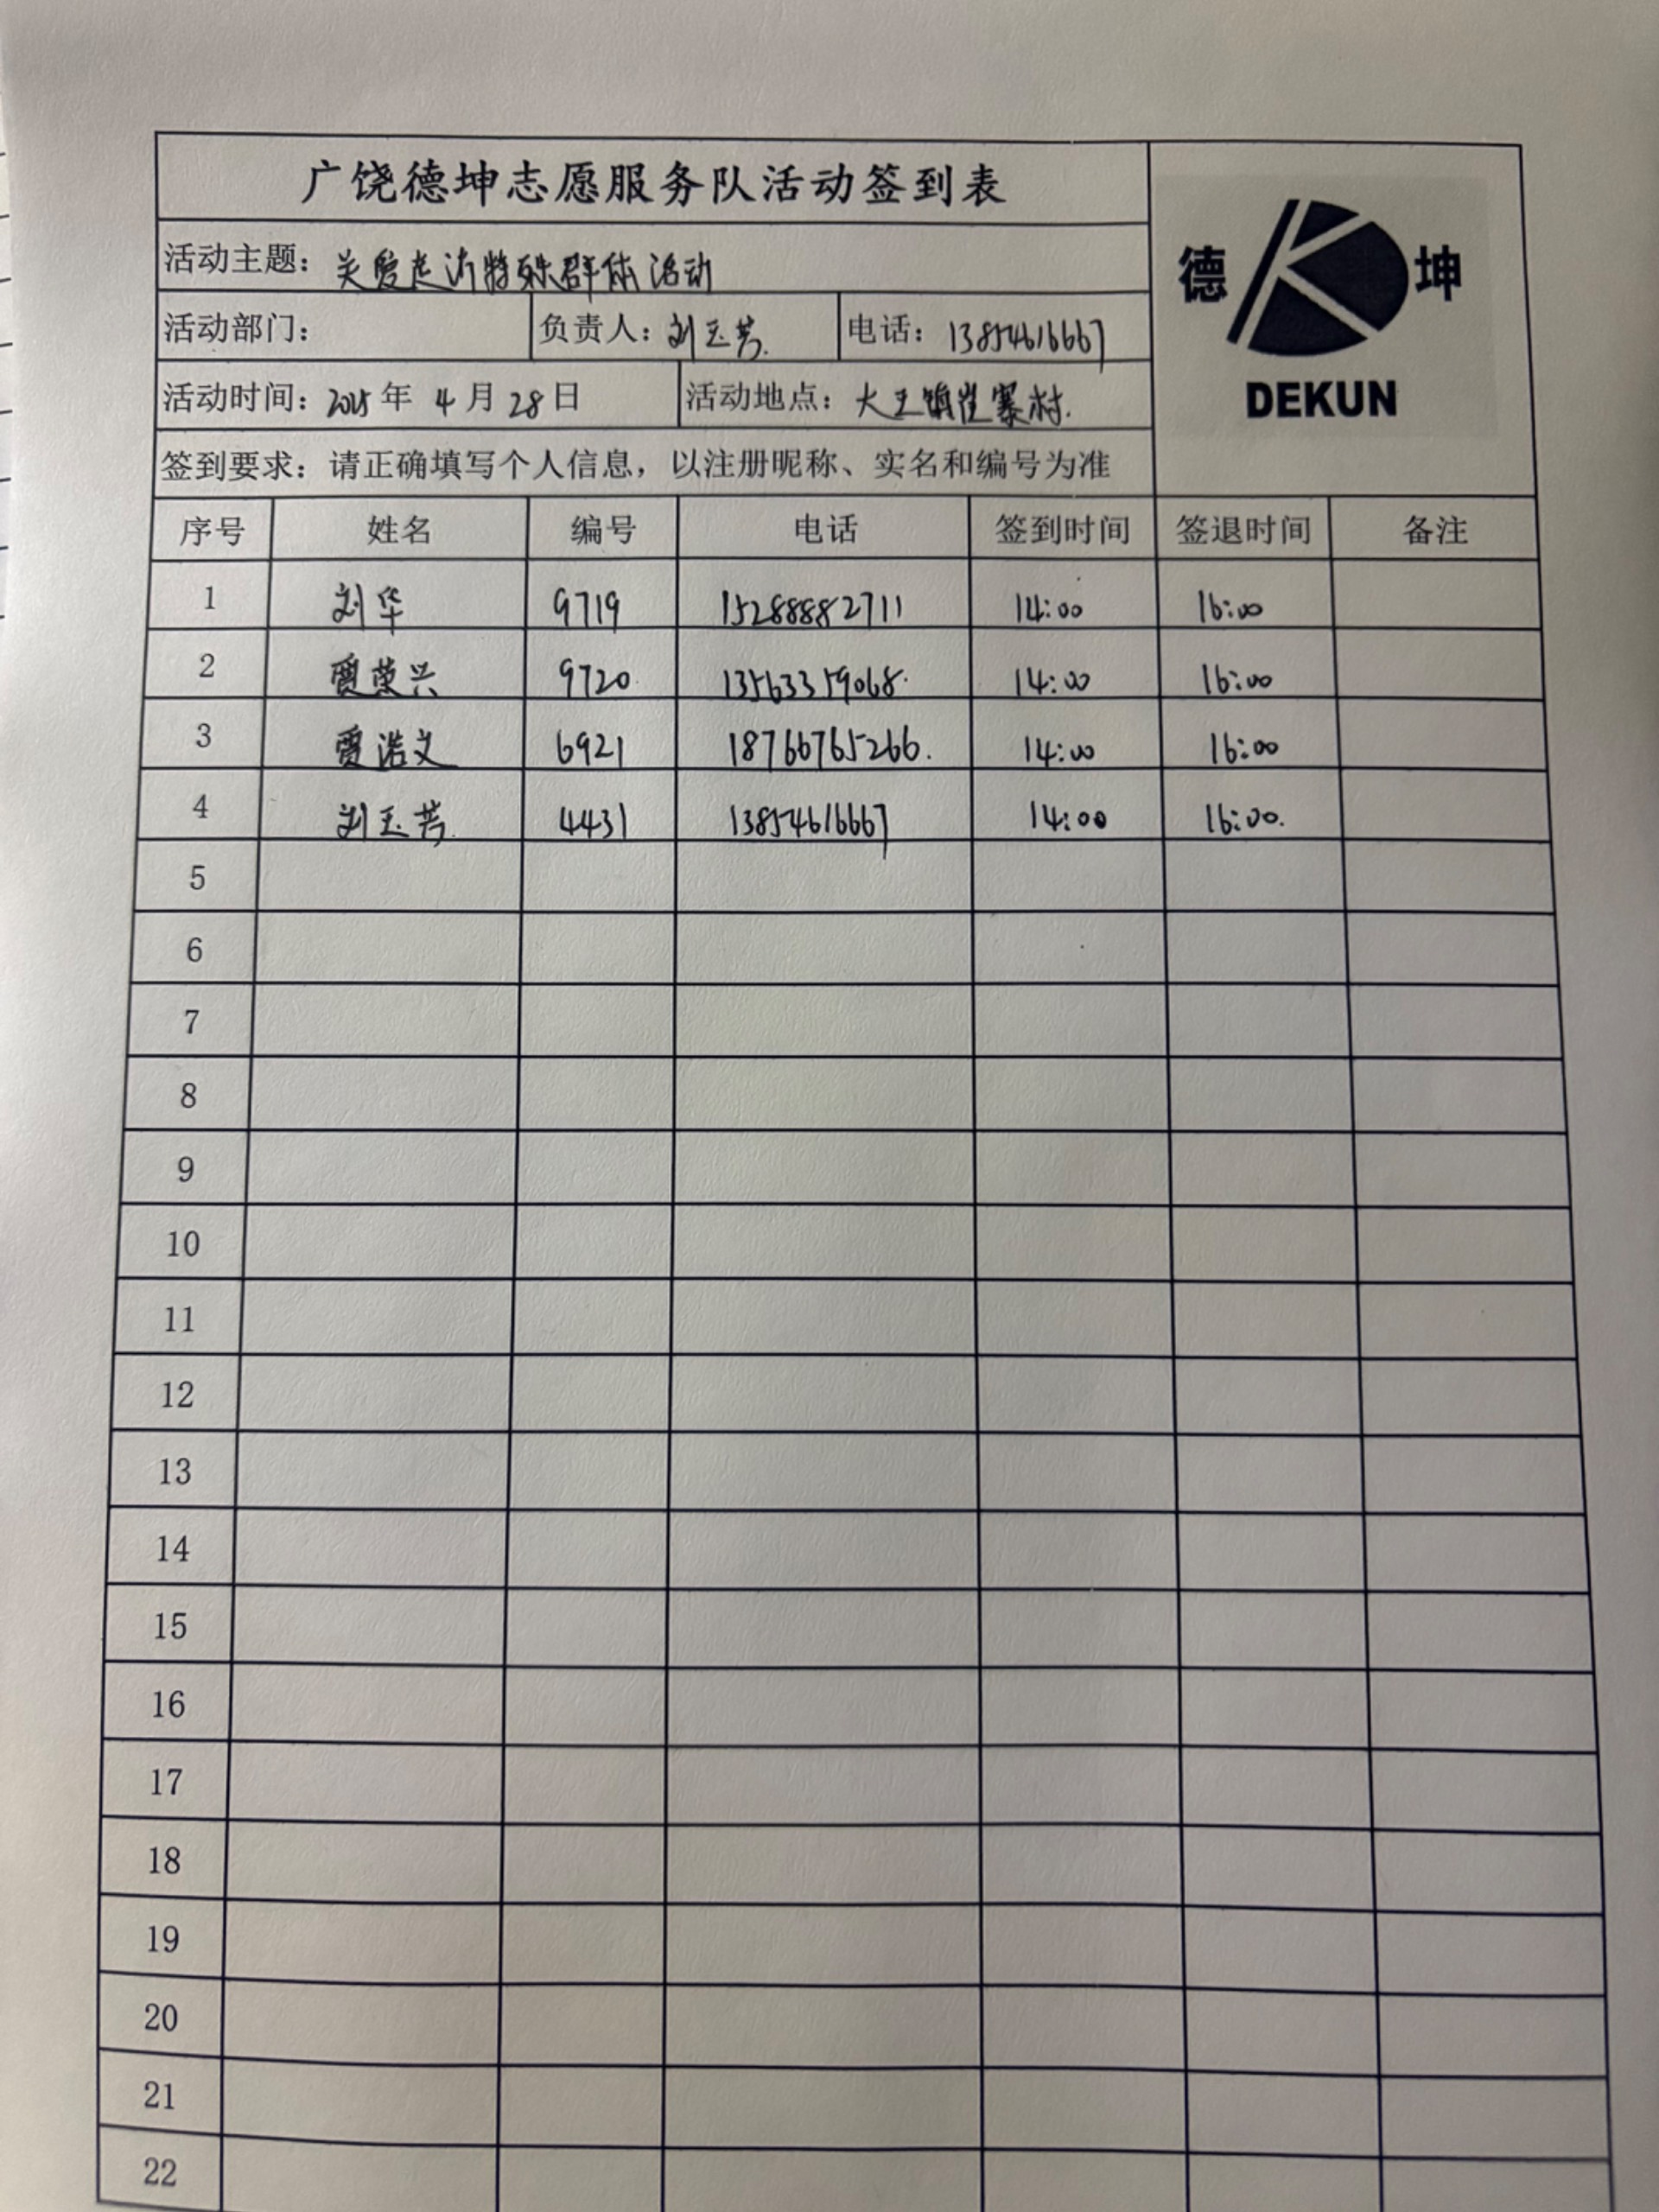 广饶德坤志愿服务队活动签到表
德 坤
DEKUN
活动主题：关爱走访特殊群体活动
活动部门： 负责人：刘玉芳. 电话：13854616667
活动时间：2025年 4月28日 活动地点：大王镇崔寨村.
签到要求：请正确填写个人信息，以注册昵称、实名和编号为准
序号 姓名 编号 电话 签到时间 签退时间 备注
1 刘华 9719 15288882711 14:00 16:00
2 贾荣兴 9720 13563359068. 14:00 16:00
3 贾浩文 6921 18766765266. 14:00 16:00
4 刘玉芳. 4431 13854616667 14:00 16:00.
5
6
7
8
9
10
11
12
13
14
15
16
17
18
19
20
21
22